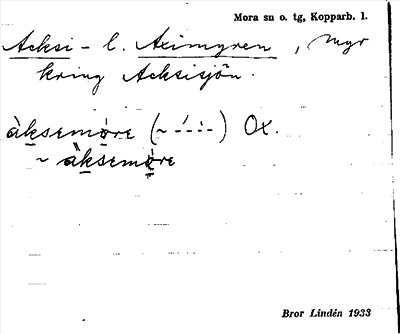 Mora sn o. tg, Kopparb. l.
Acksi- l. Aximyren, myr
kring Acksisjön.
àksemòre (~ - ́ - - -) Ox.
~ àksemòre
Bror Lindén 1933